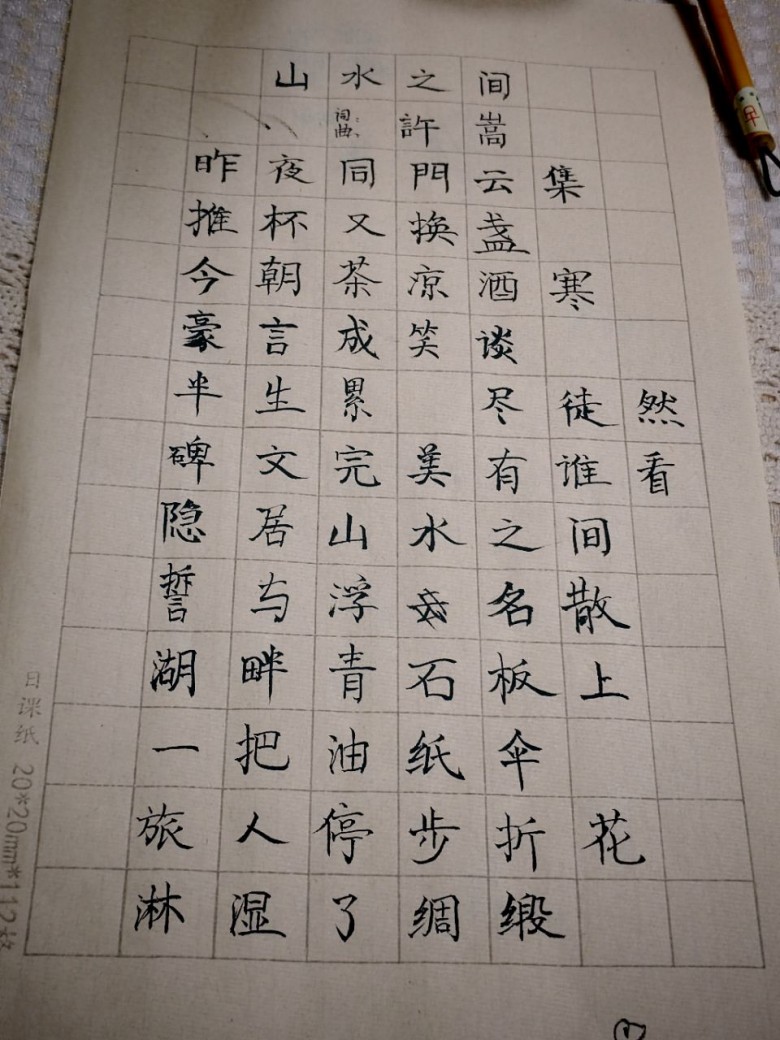 山水之间
词:
曲: 許嵩
昨夜同門云集
推杯又换盏
今朝茶凉酒寒
豪言成笑谈
半生累 尽徒然
碑文完美有谁看
隐居山水之间
誓与浮名散
湖畔青石板上
一把油纸伞
旅人停步折花
淋湿了绸缎
日课纸 20*20mm*112格
①